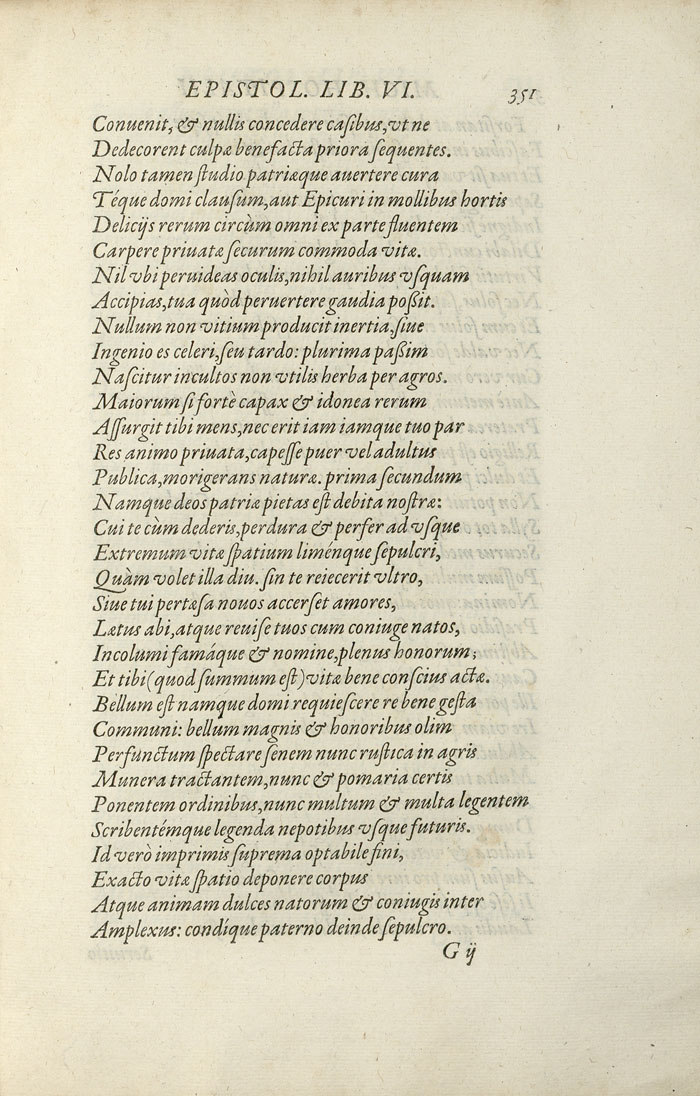 EPISTOL. LIB. VI. 351
Conuenit, & nullis concedere casibus, vt ne
Dedecorent culpæ benefacta priora sequentes.
Nolo tamen studio patriæque auertere cura
Téque domi clausum, aut Epicuri in mollibus hortis
Delicijs rerum circùm omni ex parte fluentem
Carpere priuatæ securum commoda vitæ.
Nil vbi peruideas oculis, nihil auribus vsquam
Accipias, tua quòd peruertere gaudia poßit.
Nullum non vitium producit inertia, siue
Ingenio es celeri, seu tardo: plurima paßim
Nascitur incultos non vtilis herba per agros.
Maiorum si fortè capax & idonea rerum
Assurgit tibi mens, nec erit iam iamque tuo par
Res animo priuata, capesse puer vel adultus
Publica, morigerans naturæ. prima secundum
Namque deos patriæ pietas est debita nostræ:
Cui te cùm dederis, perdura & perfer ad vsque
Extremum vitæ spatium liménque sepulcri,
Quàm volet illa diu. sin te reiecerit vltro,
Siue tui pertæsa nouos accerset amores,
Lætus abi, atque reuise tuos cum coniuge natos,
Incolumi famáque & nomine, plenus honorum;
Et tibi (quod summum est) vitæ bene conscius actæ.
Bellum est namque domi requiescere re bene gesta
Communi: bellum magnis & honoribus olim
Perfunctum spectare senem nunc rustica in agris
Munera tractantem, nunc & pomaria certis
Ponentem ordinibus, nunc multum & multa legentem
Scribentémque legenda nepotibus vsque futuris.
Id verò imprimis suprema optabile fini,
Exacto vitæ spatio deponere corpus
Atque animam dulces natorum & coniugis inter
Amplexus: condíque paterno deinde sepulcro.
G ij